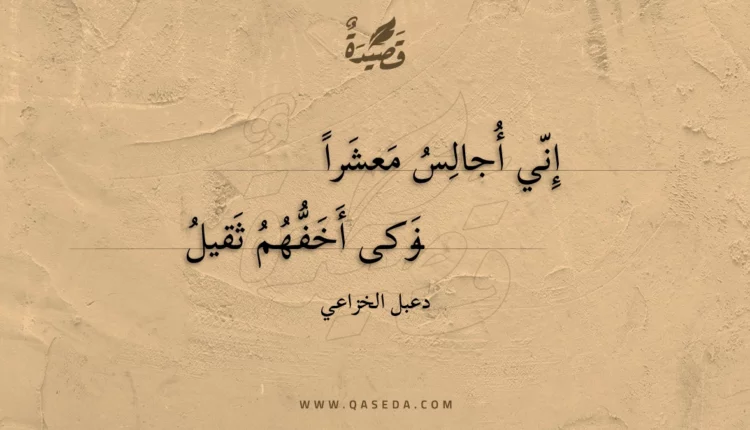 قَصِيدَةٌ
إِنّي أُجالِسُ مَعشَراً
نَوكى أَخَفُّهُمُ ثَقيلُ
دعبل الخزاعي
WWW.QASEDA.COM